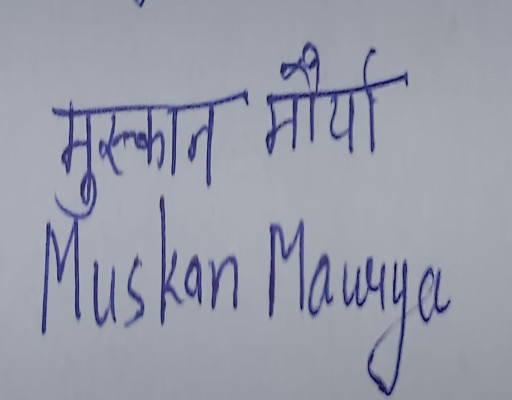 मुस्कान मौर्या
Muskan Maurya